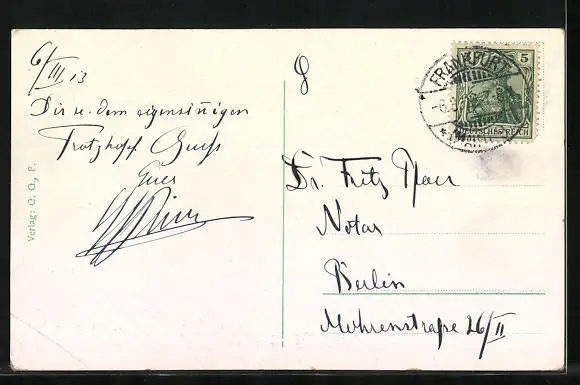 6/III 13
Dir u. dem eigensinnigen
Trotzkopf Gruss
Euer
Verlag: G. G., F.
FRANKFURT
5
DEUTSCHES REICH
Dr. Fritz
Notar
Berlin
Mohrenstraße 26/II